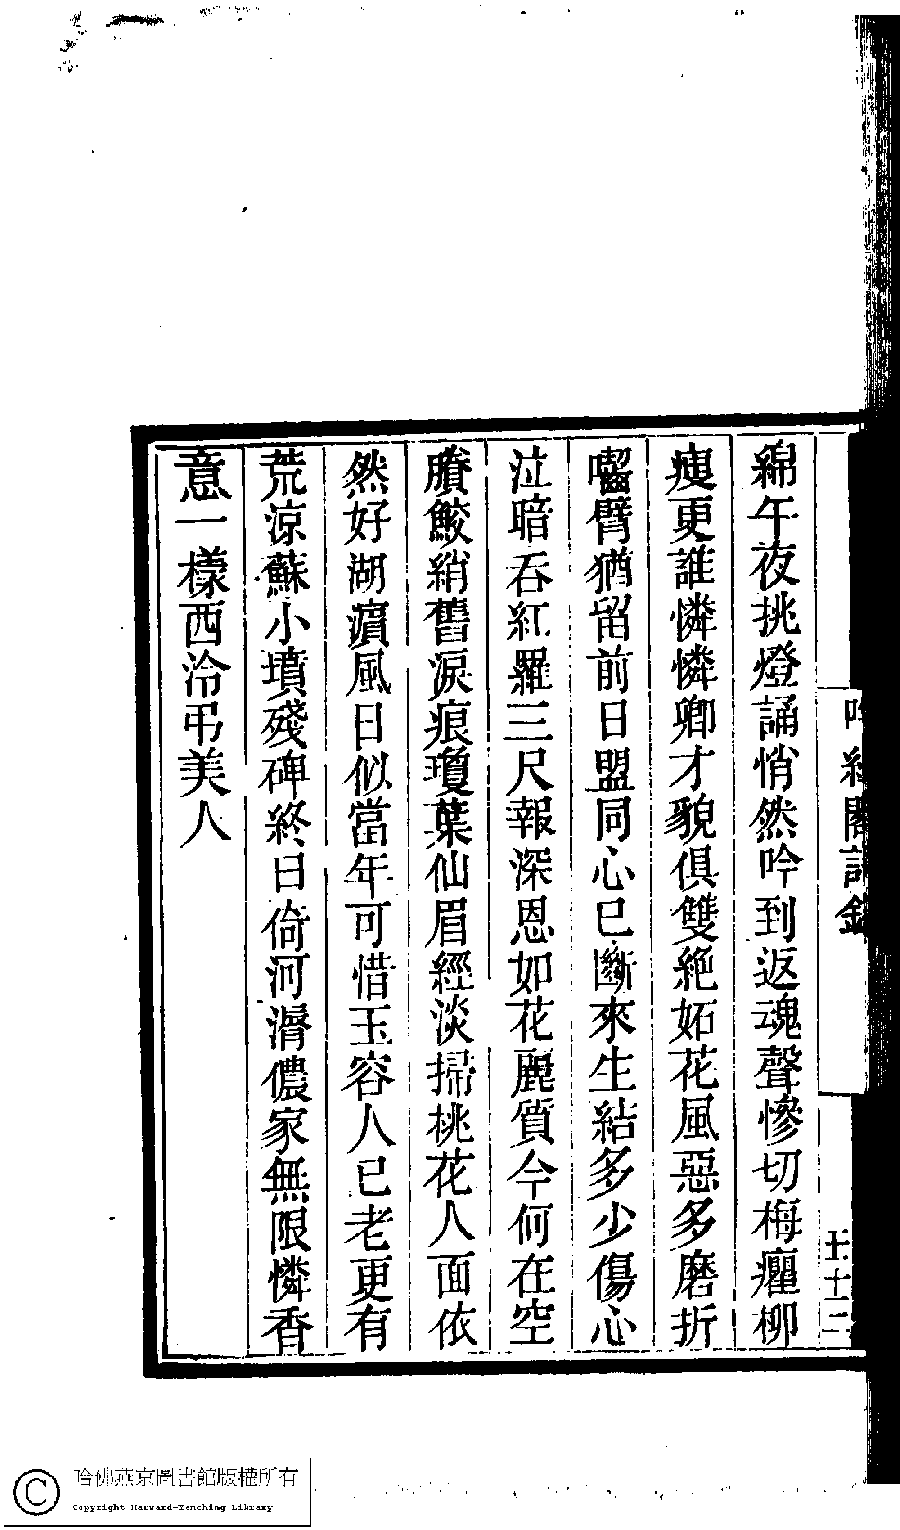 綿午夜挑燈誦悄然吟到返魂聲慘切梅癯柳
瘦更誰憐憐卿才貌俱雙絶妬花風惡多磨折
囓臂猶留前日盟同心已斷來生結多少傷心
泣暗吞紅羅三尺報深恩如花麗質今何在空
賸鮫綃舊淚痕瓊葉仙眉經淡掃桃花人面依
然好湖濵風日似當年可惜玉容人已老更有
荒涼蘇小墳殘碑終日倚河漘儂家無限憐香
意一樣西泠弔美人
哈佛燕京圖書館版權所有
Copyright Harvard-Yenching Library